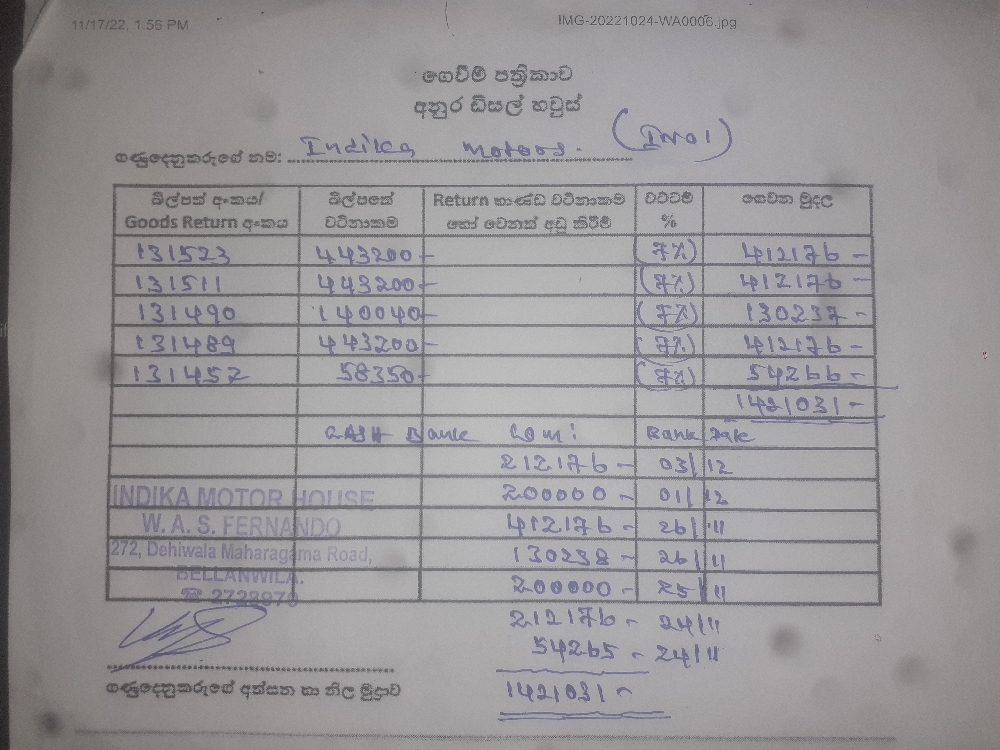 11/17/22, 1:56 PM IMG-20221024-WA0006.jpg
ගෙවීම් පත්‍රිකාව
අනුර ඩීසල් හවුස්
ගණුදෙනුකරුගේ නම: Indika Motors. (IM01)
බිල්පත් අංකය/ බිල්පතේ Return භාණ්ඩ වටිනාකම වට්ටම් ගෙවන මුදල
Goods Return අංකය වටිනාකම හෝ වෙනත් අඩු කිරීම් %
131523 443200- (7%) 412176-
131511 443200- (7%) 412176-
131490 140040- (7%) 130237-
131489 443200- (7%) 412176-
131457 58350- (7%) 54266-
1421031-
CASH Bank Com: Bank Date
212176- 03/12
200000- 01/12
INDIKA MOTOR HOUSE
W. A. S. FERNANDO 412176- 26/11
272, Dehiwala Maharagama Road, 130238- 26/11
BELLANWILA. 200000- 25/11
☎ 2728970
212176- 24/11
54265- 24/11
ගණුදෙනුකරුගේ අත්සන හා නිල මුද්‍රාව 1421031-